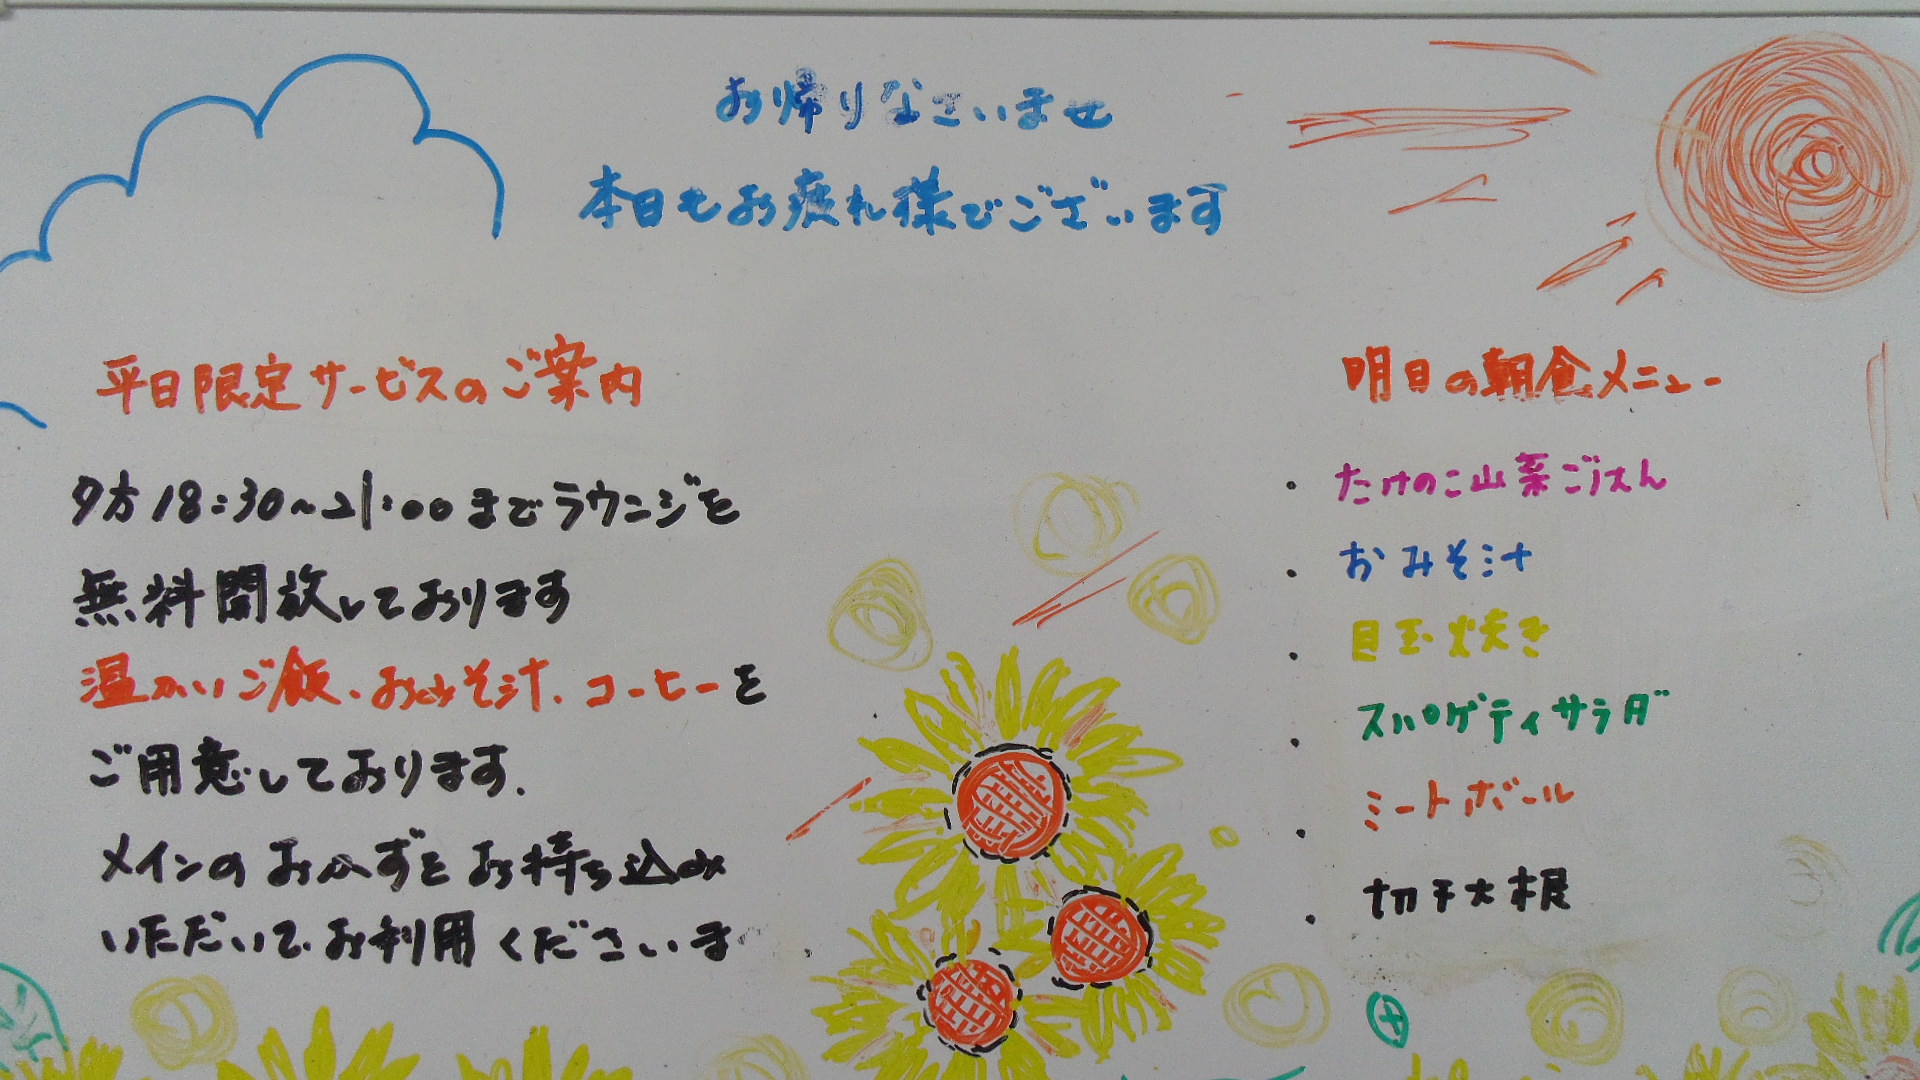 お帰りなさいませ
本日もお疲れ様でございます
平日限定サービスのご案内
夕方18:30~21:00までラウンジを
無料開放しております
温かいご飯、おみそ汁、コーヒーを
ご用意しております.
メインのおかずをお持ち込み
いただいて、お利用くださいま
明日の朝食メニュー
・たけのこ山菜ごはん
・おみそ汁
・目玉焼き
・スパゲティサラダ
・ミートボール
・切干大根